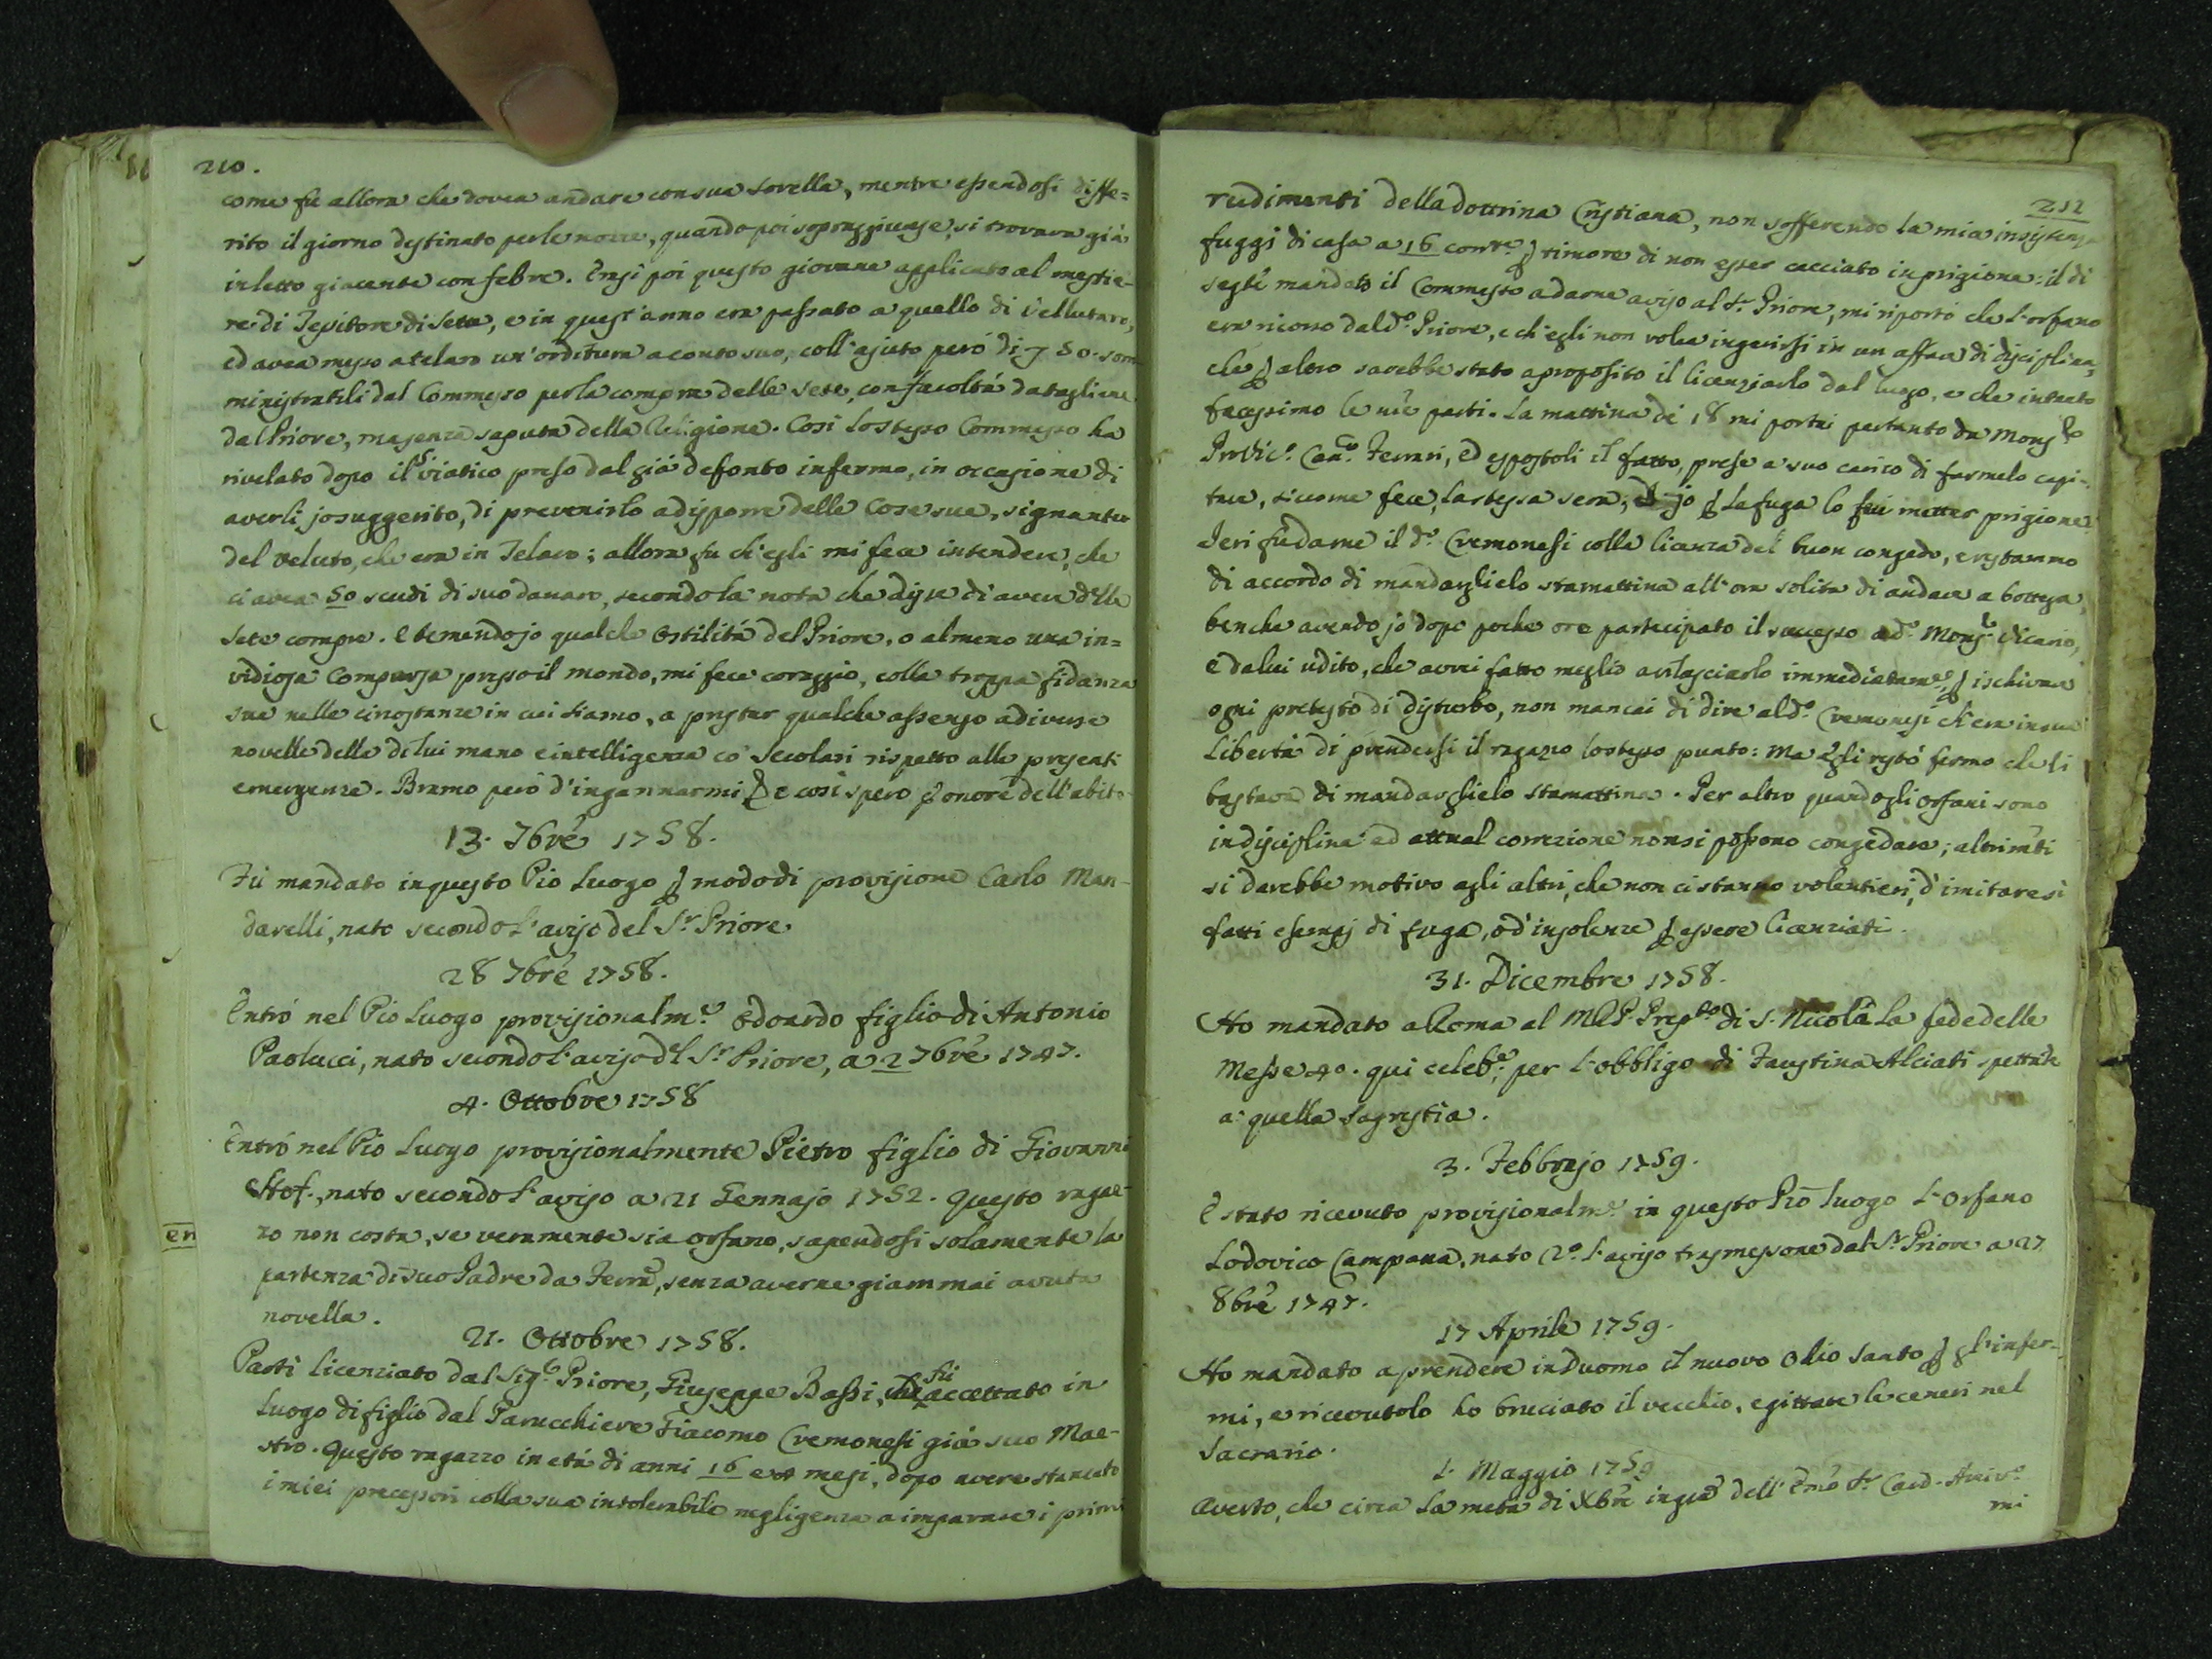 210.
come fu allora che dovea andare con sua sorella, mentre essendosi diffe=
rito il giorno destinato per le nozze, quando poi sopraggiunse, si trovava già
in letto giacente con febre. Erasi poi questo giovane applicato al mestie-
re di Tessitore di Seta, e in quest'anno era passato a quello di Vellutaro,
ed avea messo a telaro un'orditura a conto suo, coll'ajuto però di 50. som
ministratili dal Commesso per la compra delle sete, con facoltà datagliene
dal Priore, ma senza saputa della Religione. Così lo stesso Commesso ha
rivelato dopo il S. viatico preso dal già defonto infermo, in occasione di
averli jo suggerito, di prevenirlo a disporre delle cose sue, signanter
del veluto, che era in Telaro; allora fu ch'egli mi fece intendere, che
ci avea 50 scudi di suo danaro, secondo la nota che disse di avere delle
Sete compre. E temendo jo qualche ostilità del Priore, o almeno una in=
vidiosa comparsa presso il mondo, mi fece coraggio, colla troppa fidanza
sua nelle circostanze in cui siamo, a prestar qualche assenso a diverse
novelle delle di lui mano e intelligenza co' Secolari rispetto alle presenti
emergenze. Bramo però d'ingannarmi e così spero p onore dell'abito
13. 7bre 1758.
Fù mandato in questo Pio Luogo p modo di provisione Carlo Man-
davelli, nato secondo l'aviso del Sr. Priore
28 7bre 1758.
Entrò nel Pio Luogo provisionalme. Odoardo figlio di Antonio
Paolucci, nato secondo l'aviso del Sr. Priore, a 2 7bre 1747.
4. Ottobre 1758
Entrò nel Pio Luogo provisionalmente Pietro figlio di Giovanni
Hof., nato secondo l'aviso a 21 Gennajo 1752. Questo ragaz-
zo non costa, se veramente sia orfano, sapendosi solamente la
partenza di suo Padre da Ferra, senza averne giammai avuta
novella.
21. Ottobre 1758.
Partì licenziato dal Sigr. Priore, Giuseppe Bassi, che fù accettato in
luogo di figlio dal Parucchiere Giacomo Cremonesi già suo Mae-
stro. Questo ragazzo in età di anni 16 e 4 mesi, dopo avere stancato
i miei precessori colla sua intolerabile negligenza a imparare i primi
211
rudimenti della dottrina Cristiana, non sofferendo la mia insistenza
fuggì di casa a 16 corre. p timore di non esser cacciato in prigione: il dì
segte mandato il Commesso a darne aviso al Sr. Priore, mi riportò che l'orfano
era ricorso dal do. Priore, e ch'egli non volea ingerirsi in un affare di disciplina,
che p altro sarebbe stato a proposito il licenziarlo dal luogo, e che intanto
facessimo le nre parti. La mattina de 18 mi portai pertanto da Monsr.
ProVico. Cano. Ferrari, ed espostoli il fatto, prese a suo carico di farmelo capi-
tare, siccome fece, la stessa sera, ed jo p la fuga lo fei metter prigione.
Jeri fù da me il do. Cremonesi colla licenza del buon congedo, e restammo
di accordo di mandarglielo stamattina all'ora solita di andare a bottega,
benche avendo jo dopo poche ore partecipato il successo a do. Monsr. Vicario,
e da lui udito, che avrei fatto meglio a rilasciarlo immediatame. p ischivare
ogni pretesto di disturbo, non mancai di dire al do. Cremonesi ch'era in sua
libertà di prendersi il ragazzo lo stesso punto: Ma egli restò fermo che li
bastava di mandarglielo stamattina. Per altro quando gli orfani sono
in disciplina ed attual correzione non si possono congedare; altrimti
si darebbe motivo agli altri, che non ci stanno volentieri, d'imitare sì
fatti esempj di fuga, o d'insolenze p essere licenziati.
31. Dicembre 1758.
Ho mandato a Roma al MRP. Prepto di S. Nicola la fede delle
Messe 40. qui celebe. per l'obbligo di Faustina Alciati spettante
a quella Sagrestia.
3. Febbrajo 1759.
E stato ricevuto provisionalme. in questo Pio Luogo l'orfano
Lodovico Campana, nato 2o. l'aviso trasmessone dal Sr. Priore a 27
8bre 1747.
17 Aprile 1759.
Ho mandato a prendere in Duomo il nuovo olio santo p gl'infer-
mi, e ricevutolo ho bruciato il vecchio, e gittate le ceneri nel
Sacrario.
1. Maggio 1759
Averto, che circa la metà di Xbre in dell'Emo Sr. Card. Arciv.
mi
en